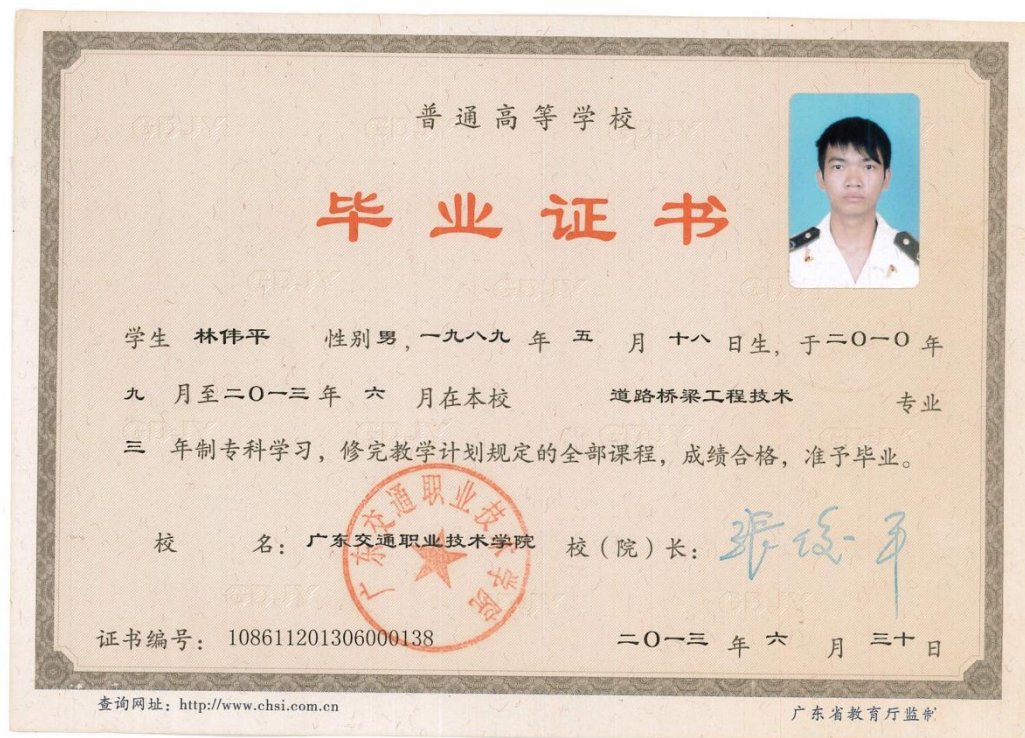 普通高等学校
毕业证书
学生 林伟平 性别 男，一九八九 年 五 月 十八 日生，于二〇一〇 年
九 月至二〇一三 年 六 月在本校 道路桥梁工程技术 专业
三 年制专科学习，修完教学计划规定的全部课程，成绩合格，准予毕业。
校 名：广东交通职业技术学院 校（院）长：张俊平
广东交通职业技术学院
证书编号：108611201306000138 二〇一三 年 六 月 三十 日
查询网址：http://www.chsi.com.cn 广东省教育厅监制